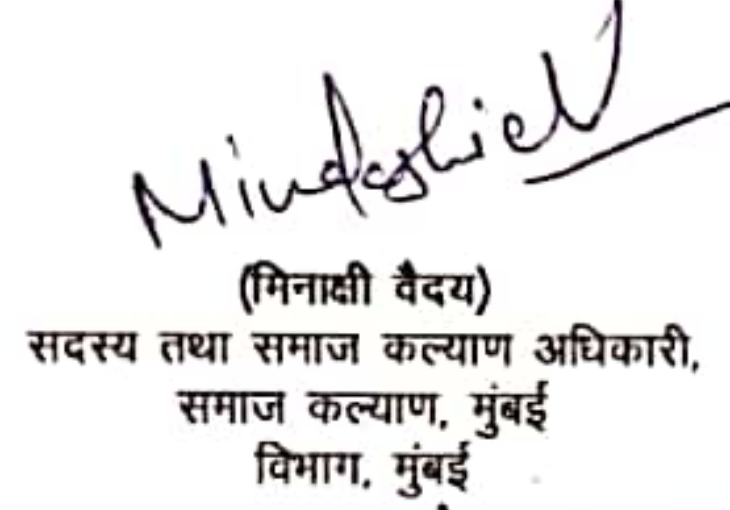 (मिनाक्षी वैदय)
सदस्य तथा समाज कल्याण अधिकारी,
समाज कल्याण, मुंबई
विभाग, मुंबई